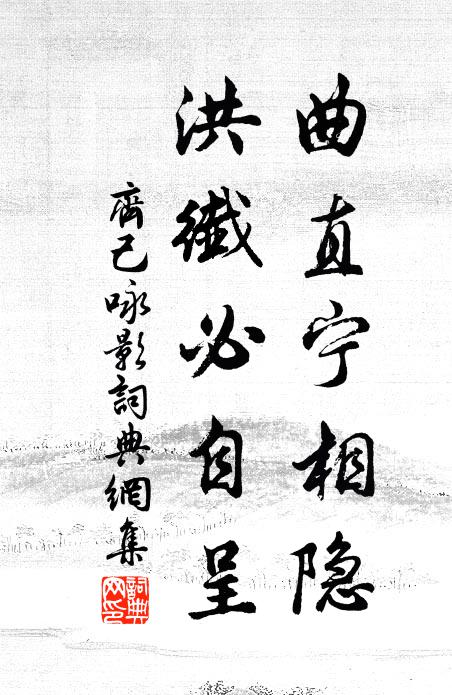 曲直宁相隐
洪纖必自呈
齊己咏影詞典網集
詞典網印